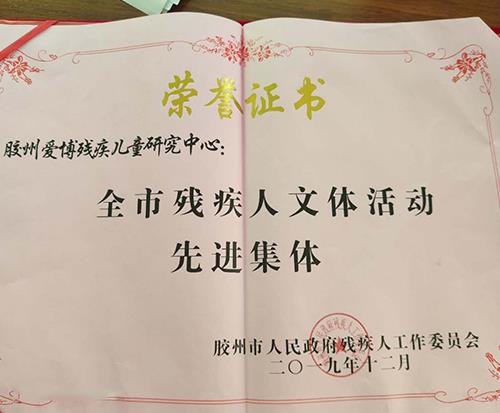 荣誉证书
胶州爱博残疾儿童研究中心：
全市残疾人文体活动
先进集体
胶州市人民政府残疾人工作委员会
二〇一九年十二月